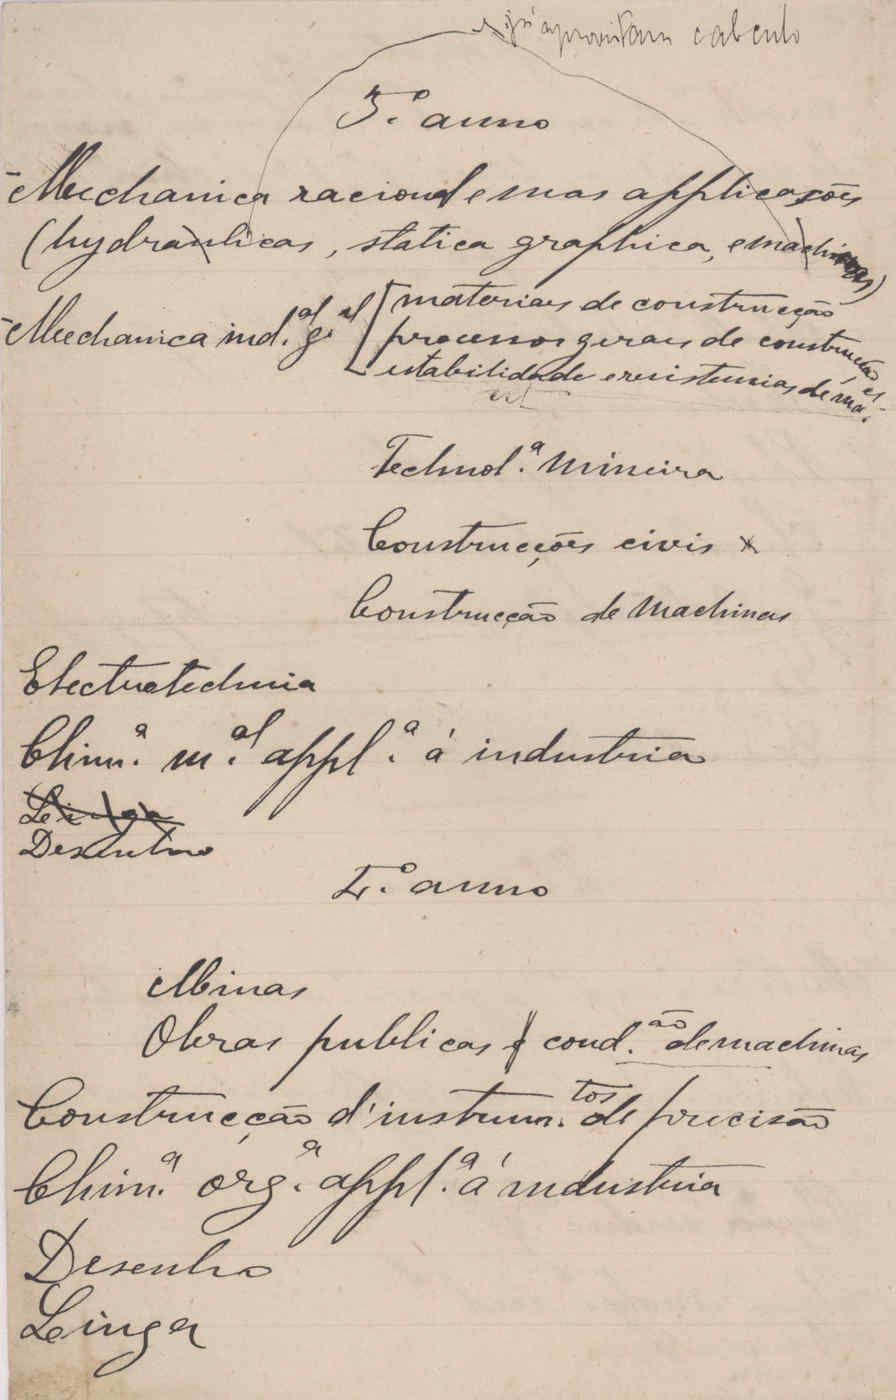 já aproveitam calculo
3.º anno
- Mechanica racional e suas applicações
(hydraulicas, statica graphica, e machinas)
- Mechanica ind.al g.al [materiaes de construcção
processos geraes de construcção
estabilidade e resistencias de ma.es
Technol.a Mineira
Construcções civis x
Construcção de Machinas
Electrotechnia
Chim.a m.al appl.a á industria
Linga
Desenho
4.º anno
Minas
Obras publicas cond.ão de machinas
Construcção d'instrum.tos de precisão
Chim.a org.a appl.a á industria
Desenho
Linga